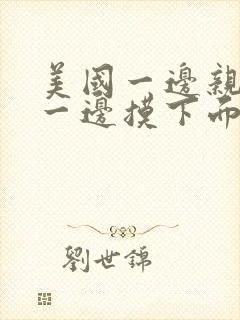 美國一邊親
一邊摸下而
劉世錦